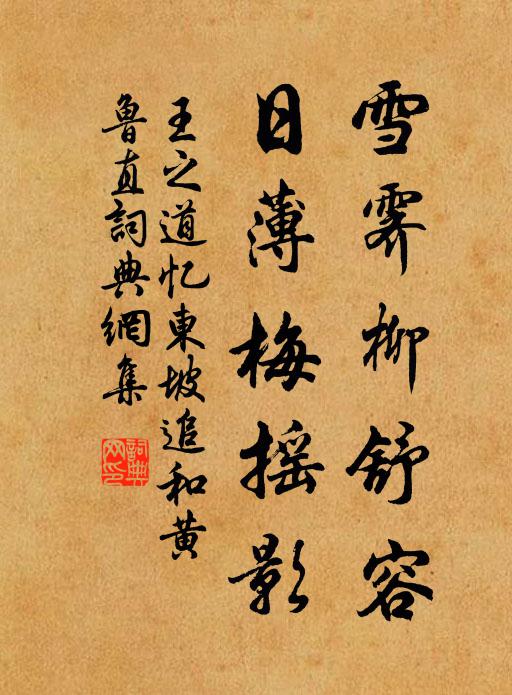 雪霁柳舒容
日薄梅摇影
王之道忆東坡追和黄
鲁直詞典網集
詞典网印